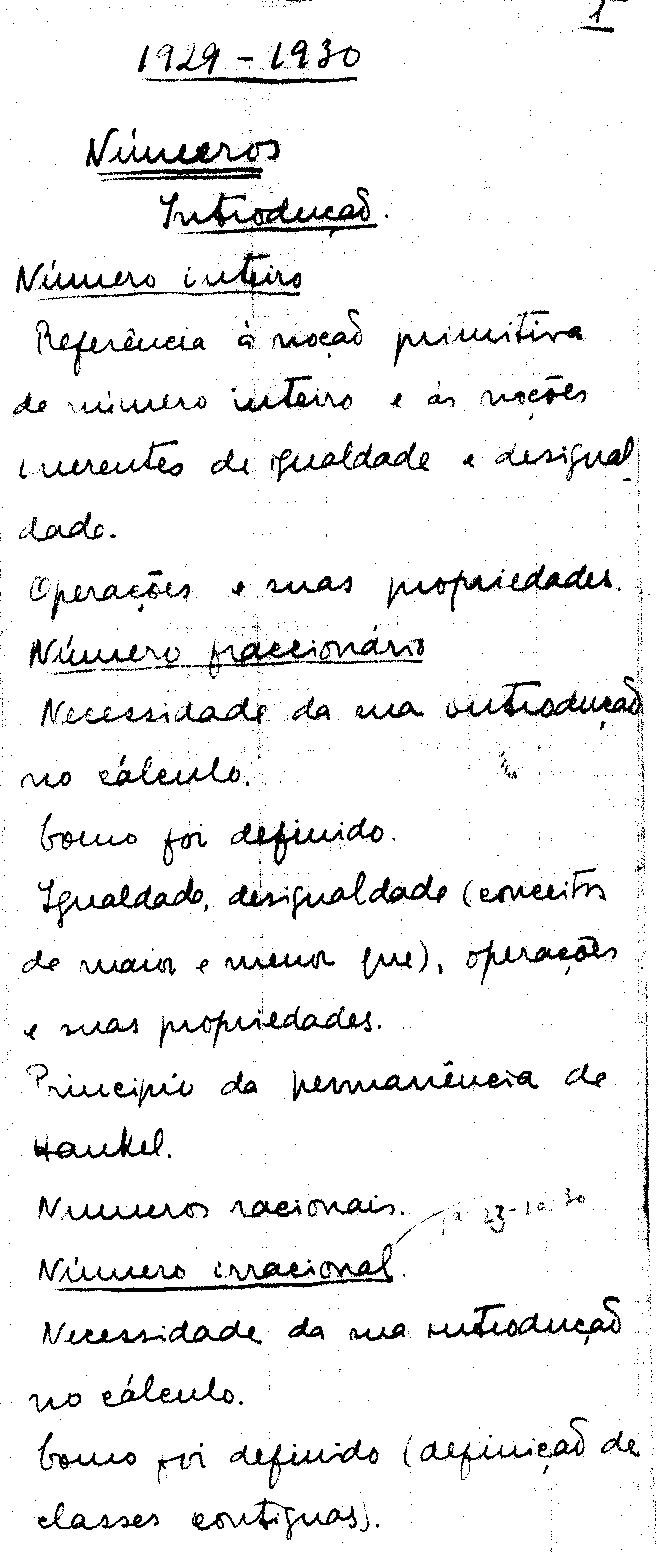 1
1929 - 1930
Números
Introdução.
Número inteiro
Referência à noção primitiva
de número inteiro e às noções
inerentes de igualdade e desigual
dade.
Operações e suas propriedades.
Número fraccionário
Necessidade da sua introdução
no cálculo.
Como foi definido.
Igualdade, desigualdade (conceitos
de maior e menor que), operações
e suas propriedades.
Princípio da permanência de
Hankel.
Numeros racionais.
1ª 23-10-30
Número irracional.
Necessidade da sua introdução
no cálculo.
Como foi definido (definição de
classes contíguas).